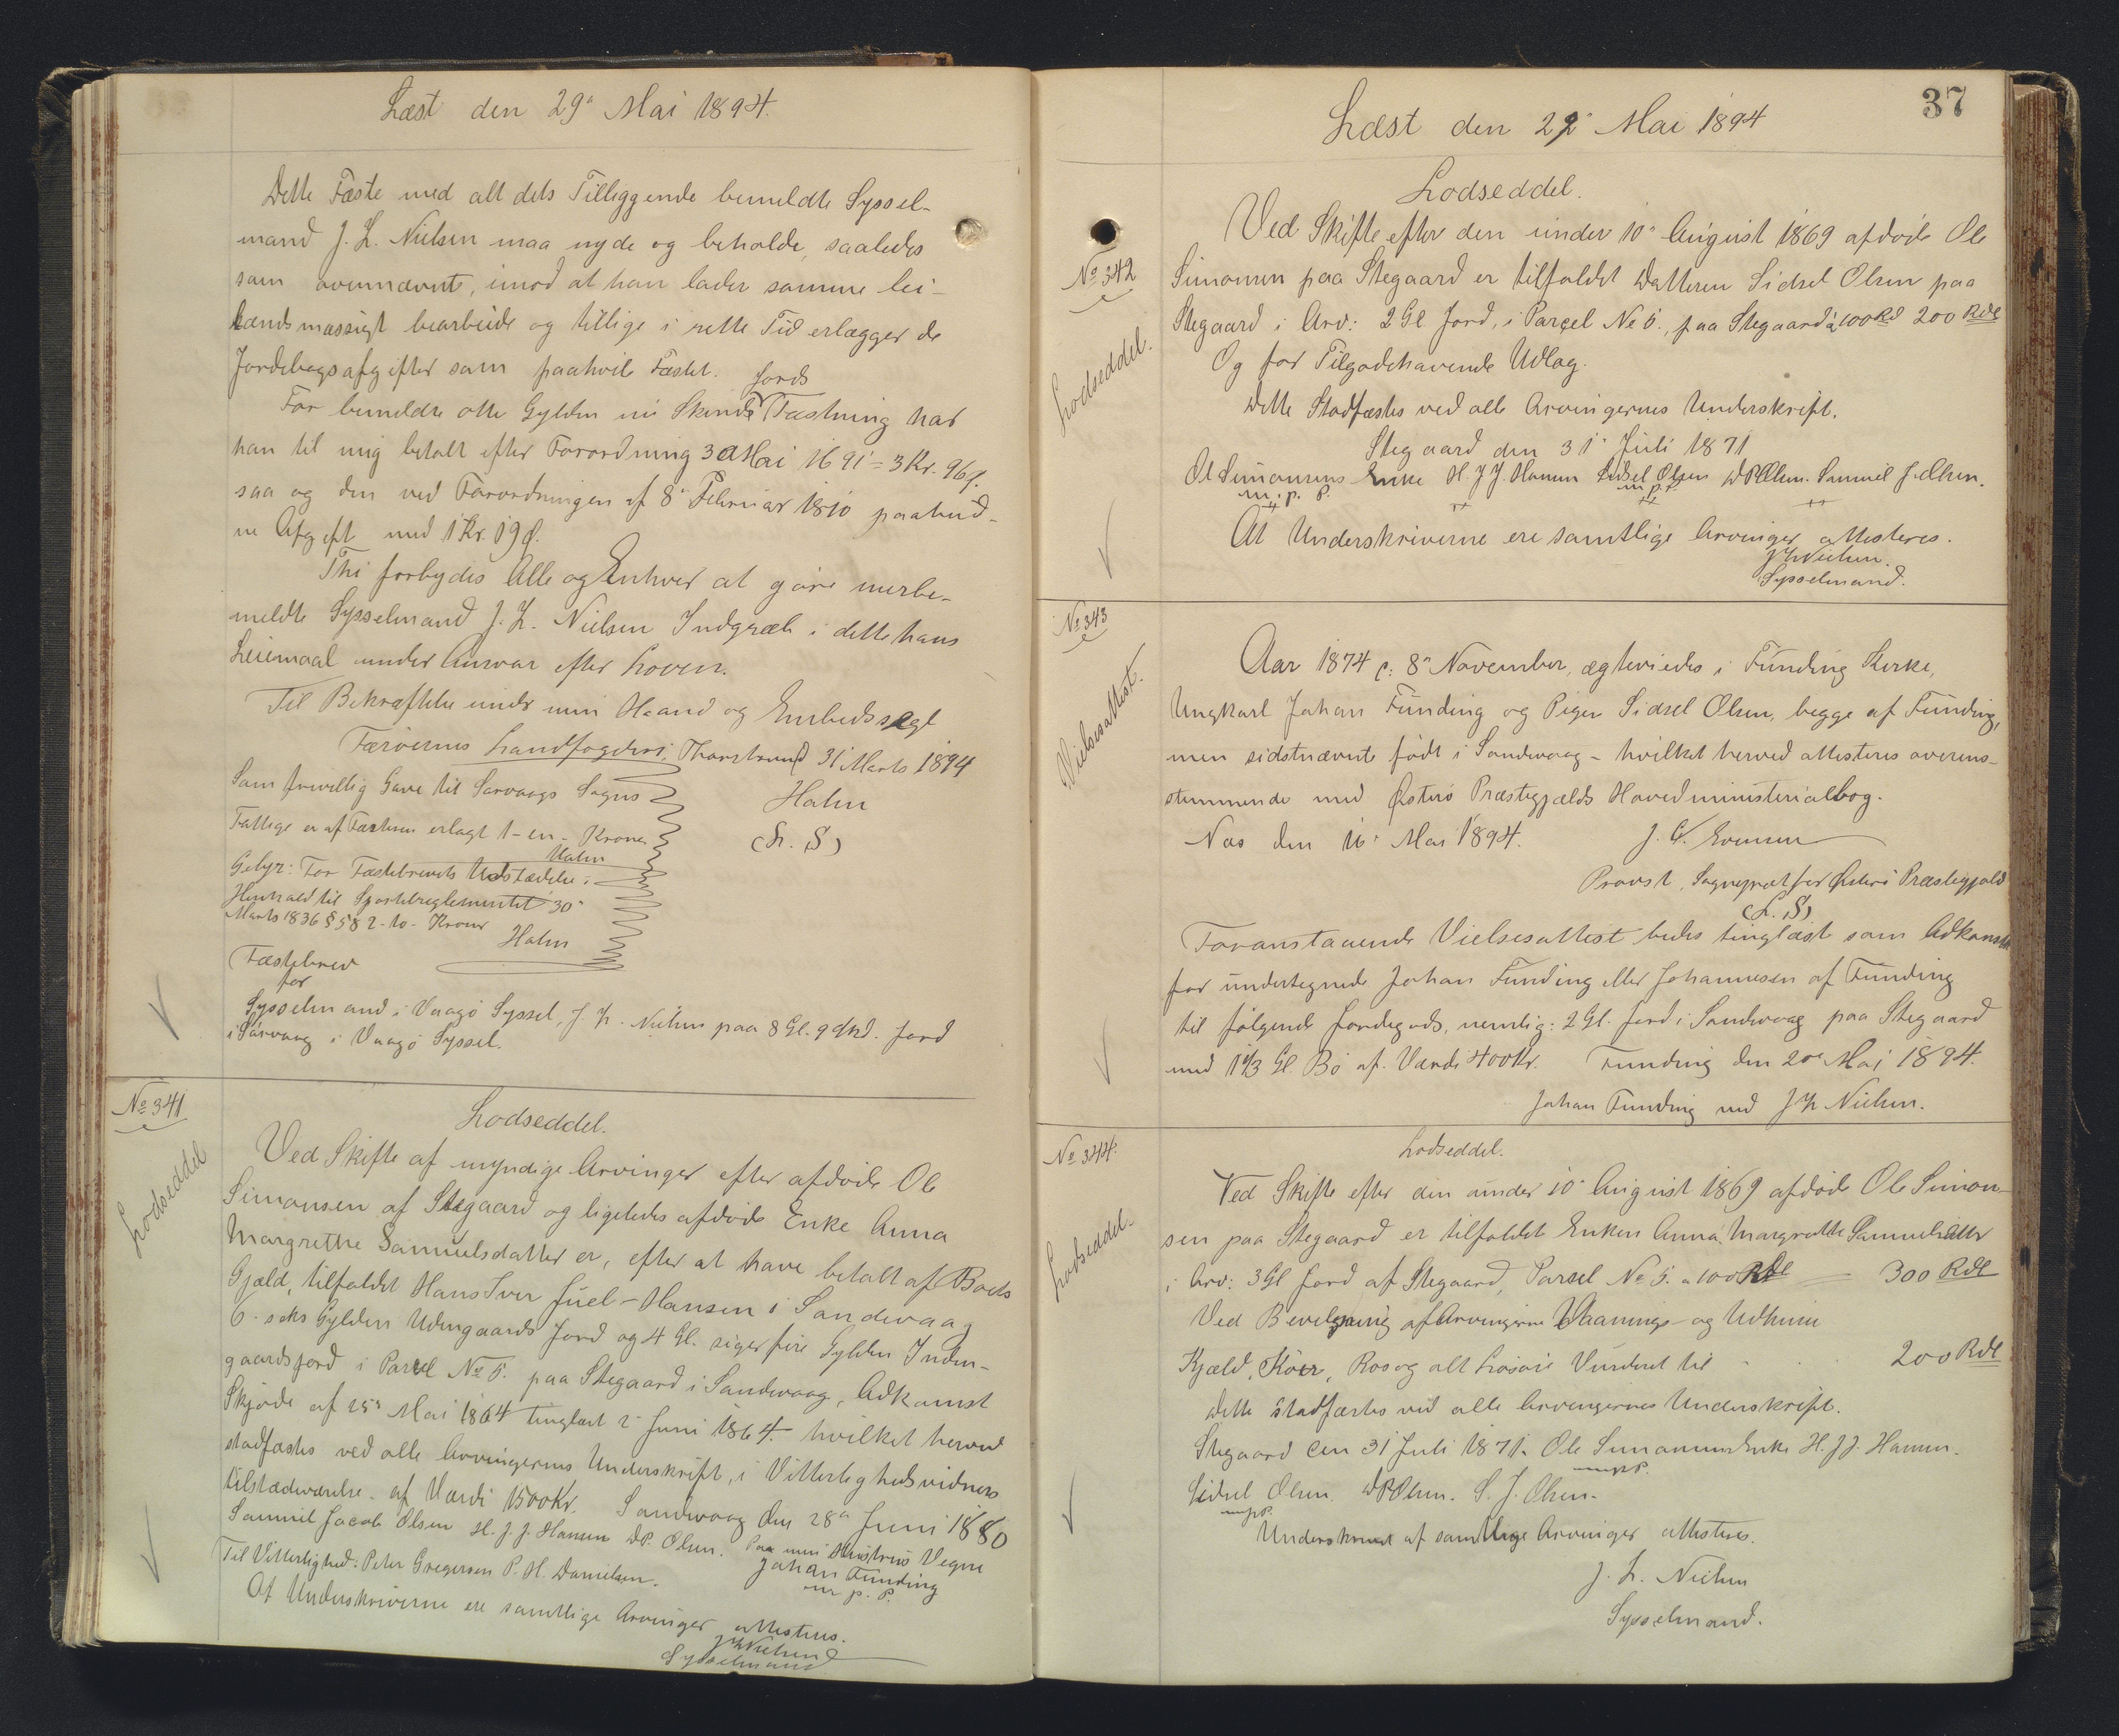 Læst den 29' Mai 1894.
Dette Fæste med alt dets Tilleggende bemeldte Syssel-
mand J. H. Nielsen maa nyde og beholde, saaledes
som ovennævnte, imod at han lader samme lei-
lændsmæssigt bearbeide og tillige i rette Tid erlægger de
Jordebogsafgifter som paahvile Fæstet.
For bemeldte otte Gylden ni Skinds Jords Fæstning har
han til mig betalt efter Forordning 30 Mai 1691 = 3 Kr. 96 Ø.
saa og den ved Forordningen af 8' Februar 1810 paabud-
ne Afgift med 1 Kr. 19 Ø.
Thi forbydes Alle og Enhver at gøre merbe-
meldte Sysselmand J. H. Nielsen Indgreb i dette hans
Leiemaal under Ansvar efter Loven.
Til Bekræftelse under min Haand og Embedssegl
Færøernes Landfogderi, Thorshavn d 31' Marts 1894
Hahn
(L. S)
Som frivillig Gave til Sørvaags Sogns
Fattige er af Fæsteren erlagt 1 - en - Krone
Hahn
Gebyr: For Fæstebrevets Udstædelse i
Henhold til Sportelreglementet 30'
Marts 1836 § 58 2 - to - Kroner
Hahn
Fæstebrev
for
Sysselmand i Vaagø Syssel, J. H. Nielsen paa 8 Gl. 9 Skd. Jord
i Sørvaag i Vaagø Syssel.
No 341
Lodseddel
Lodseddel.
Ved Skifte af myndige Arvinger efter afdøde Ole
Simonsen af Stegaard og ligeledes afdøde Enke Anna
Margrethe Samuelsdatter er, efter at have betalt af Boets
Gjæld, tilfaldet Hans Iver Juel-Hansen i Sandevaag
6 - seks Gylden Udengaards Jord og 4 Gl. siger fire Gylden Inden-
gaardsjord i Parcel No 5. paa Stegaard i Sandevaag, Adkomst
Skjøde af 25' Mai 1864 tinglæst 2' Juni 1864. hvilket herved
stadfæstes ved alle Arvingernes Underskrift, i Vitterlighedsvidners
tilstædeværelse. af Værdi 1500 Kr. Sandevaag den 28' Juni 1880
Samuel Jacob Olsen H. J. J. Hansen D.P. Olsen. Paa min Hustrus Vegne
Johan Funding
m. p. P.
Til Vitterlighed: Peter Gregersen P. H. Danielsen.
At Underskriverne ere samtlige Arvinger attesteres.
J H Nielsen
Sysselmand
37
Læst den 29' Mai 1894
No 342
Lodseddel.
Lodseddel.
Ved Skifte efter den under 10' August 1869 afdøde Ole
Simonsen paa Stegaard er tilfaldet Datteren Sidsel Olsen paa
Stegaard i Arv: 2 Gl Jord, i Parcel No 5., paa Stegaard a 100 Rd 200 Rdl
Og for Tilgodehavende Udlag.
Dette Stadfæstes ved alle Arvingernes Underskrift.
Stegaard den 31' Juli 1871
Ol Simonsens Enke H. J J. Hansen Sidsel Olsen D P Olsen. Samuel J. Olsen.
m. p. P. m. p. P.
At Underskriverne ere samtlige Arvinger attesteres.
J H Nielsen.
Sysselmand.
No 343
Vielsesattest.
Aar 1874 d: 8' November, ægteviedes i Funding Kirke,
Ungkarl Johan Funding og Pigen Sidsel Olsen, begge af Funding,
men sidstnævnte født i Sandevaag - hvilket herved attesteres overens-
stemmende med Østerø Præstegjælds Hovedministerialbog.
Næs den 16' Mai 1894. J. G. Evensen
Provst, Sognepræst for Østerø Præstegjæld
(L. S)
Foranstaaende Vielsesattest bedes tinglæst som Adkomst
for undertegnede Johan Funding eller Johannesen af Funding
til følgende Jordegods, nemlig: 2 Gl. Jord i Sandevaag paa Stegaard
med 1 1/3 Gl. Bø af Værdi 400 Kr. Funding den 20' Mai 1894.
Johan Funding ved J H Nielsen.
No 344.
Lodseddel.
Lodseddel.
Ved Skifte efter den under 10' August 1869 afdøde Ole Simon-
sen paa Stegaard er tilfaldet Enken Anna Margrethe Samuelsdatter
i Arv: 3 Gl Jord af Stegaard, Parsel No 5. a 100 Rdl — 300 Rdl
Ved Bevilgning af Arvingerne Vaanings- og Udhuse
Kjæld, Køer, Ros og alt Løsøre Vurderet til 200 Rdl
Dette stadfæstes ved alle Arvingernes Underskrift.
Stegaard den 31' Juli 1871. Ole Simonsens Enke H. J J. Hansen.
m. p. P.
Sidsel Olsen. D P Olsen. S. J. Olsen.
m. p. P.
Underskrevet af samtlige Arvinger attesteres.
J. H. Nielsen
Sysselmand.